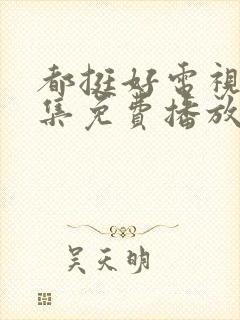 都挺好電視
集免費播放
吴天明